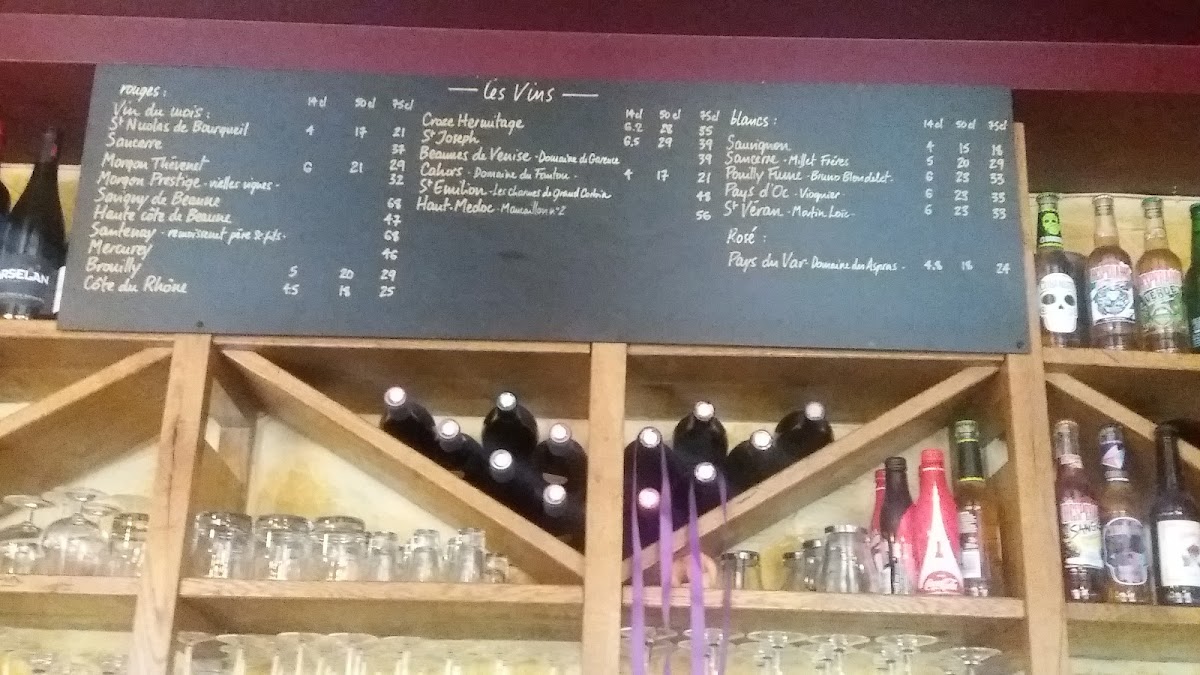 Les Vins
rouges : 14 cl 50 cl 75 cl
Vin du mois :
St Nicolas de Bourgueil 4 17 21
Sancerre 37
Morgon Thévenet 6 21 29
Morgon Prestige - vielles vignes - 32
Savigny de Beaune 68
Haute côte de Beaune 47
Santenay - remoissenet père & fils - 68
Mercurey 46
Brouilly 5 20 29
Côte du Rhône 4.5 18 25
14 cl 50 cl 75 cl
Croze Hermitage 6.2 28 35
St Joseph 6.5 29 39
Beaumes de Venise - Domaine de Garence 39
Cahors - Domaine du Fanton - 4 17 21
St Emilion - Les charmes du Grand Corbin 48
Haut-Medoc - Maucaillou n°2 56
blancs : 14 cl 50 cl 75 cl
Sauvignon 4 15 18
Sancerre - Millet Frères 5 20 29
Pouilly Fumé - Bruno Blondelet - 6 23 33
Pays d'Oc - Viognier 6 23 33
St Véran - Martin Loïc - 6 23 33
Rosé :
Pays du Var - Domaine des Aspras - 4.8 18 24
RSELAN
Coca-Cola